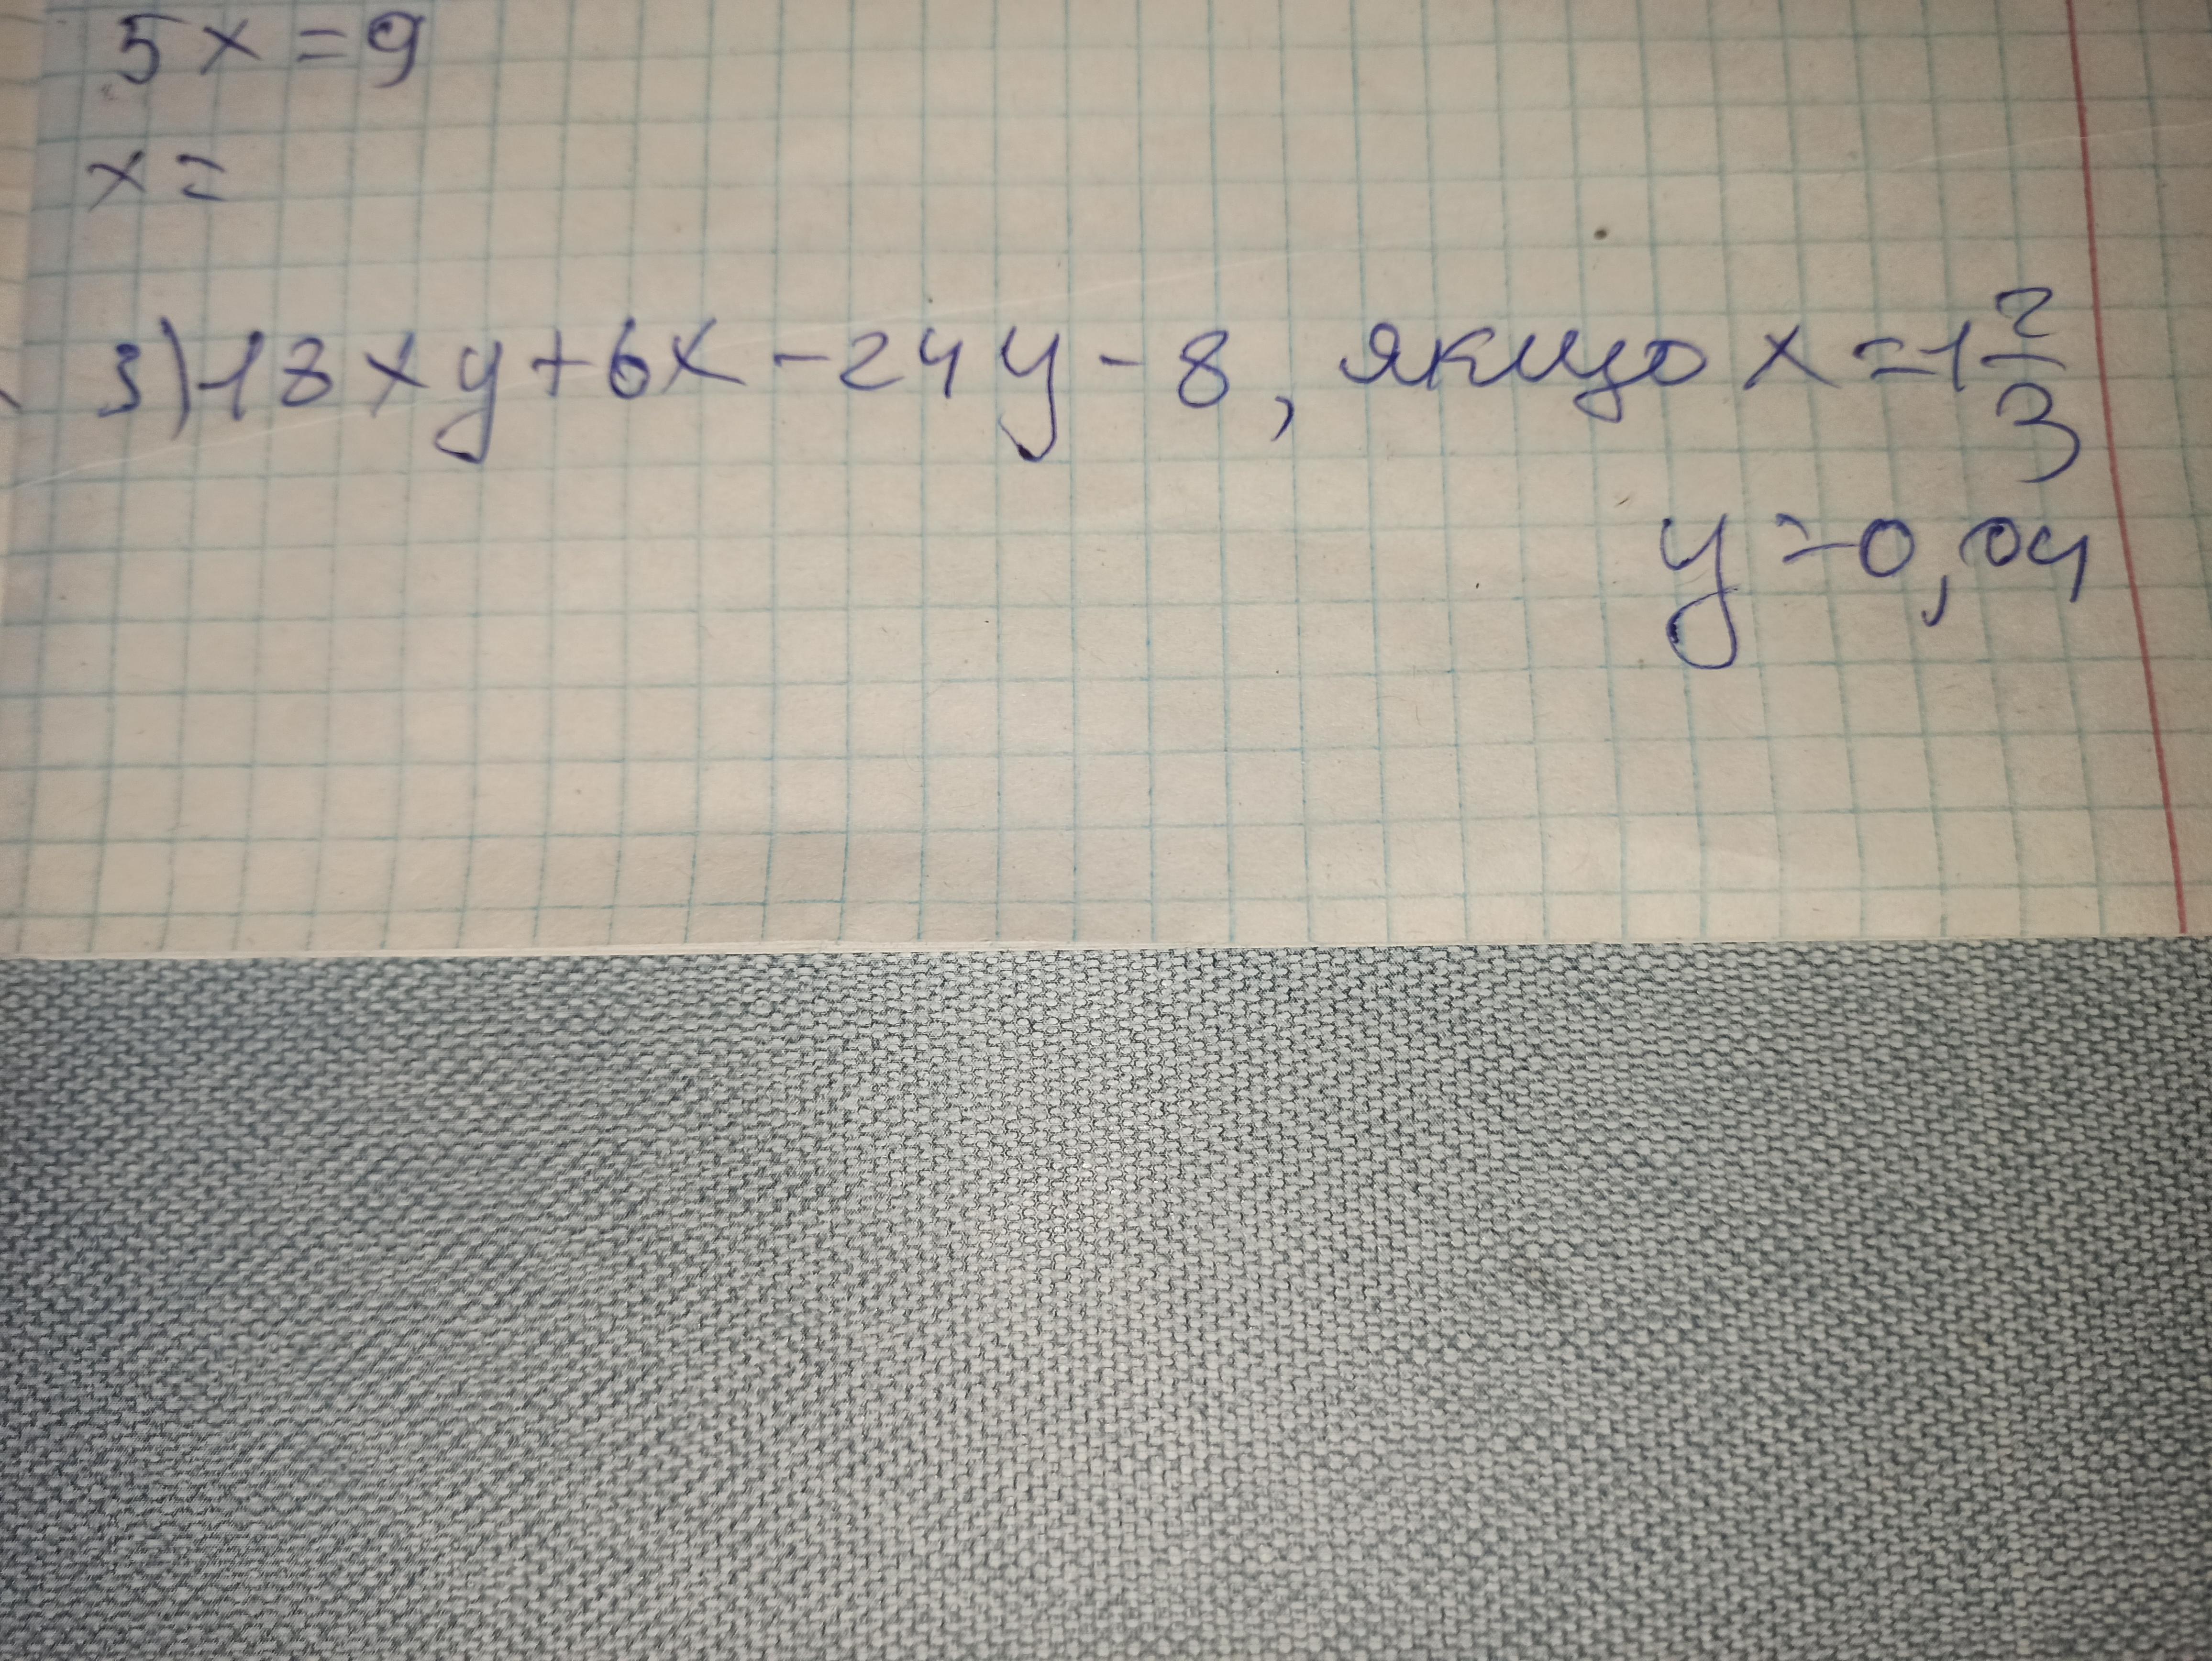 5x=9
x=
3) 18xy+6x-24y-8, якщо x=1 2/3
y=0,04